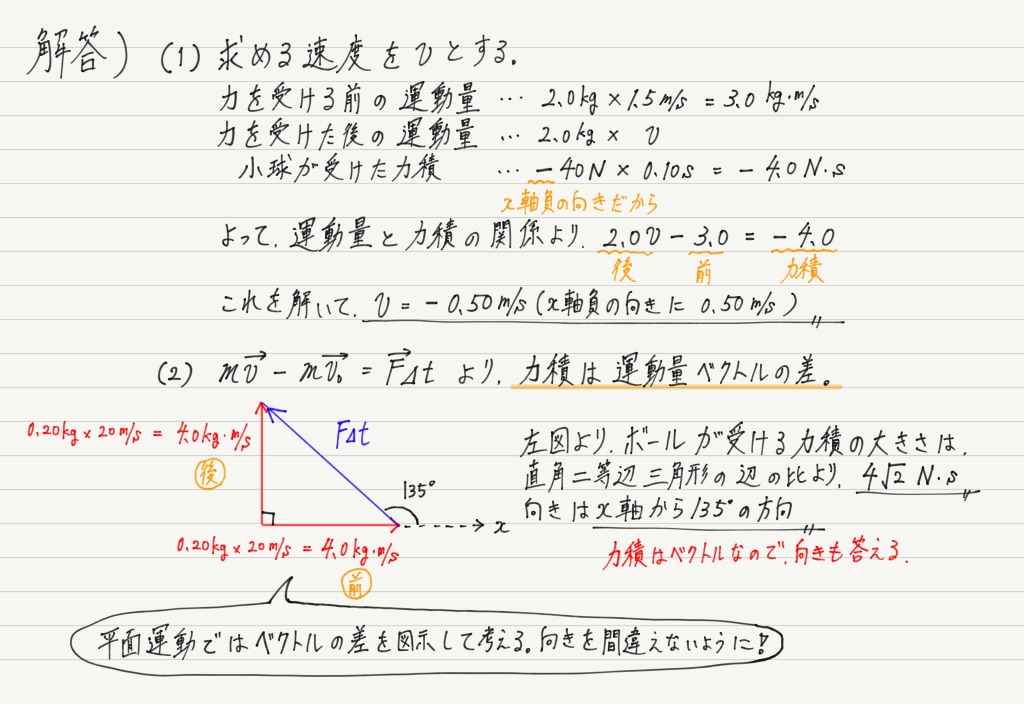 解答) (1) 求める速度をvとする.
力を受ける前の運動量 … 2.0kg×1.5m/s = 3.0 kg·m/s
力を受けた後の運動量 … 2.0kg× v
小球が受けた力積 … -40N × 0.10s = -4.0N·s
x軸負の向きだから
よって, 運動量と力積の関係より, 2.0v - 3.0 = -4.0
後 前 力積
これを解いて, v = -0.50m/s (x軸負の向きに 0.50m/s)
(2) mv→ - mv₀→ = F→Δt より, 力積は運動量ベクトルの差。
0.20kg×20m/s = 4.0kg·m/s
後
FΔt
135°
x
0.20kg×20m/s = 4.0kg·m/s
前
左図より, ボールが受ける力積の大きさは,
直角二等辺三角形の辺の比より, 4√2 N·s
向きはx軸から135°の方向
力積はベクトルなので, 向きも答える.
平面運動ではベクトルの差を図示して考える。向きを間違えないように!